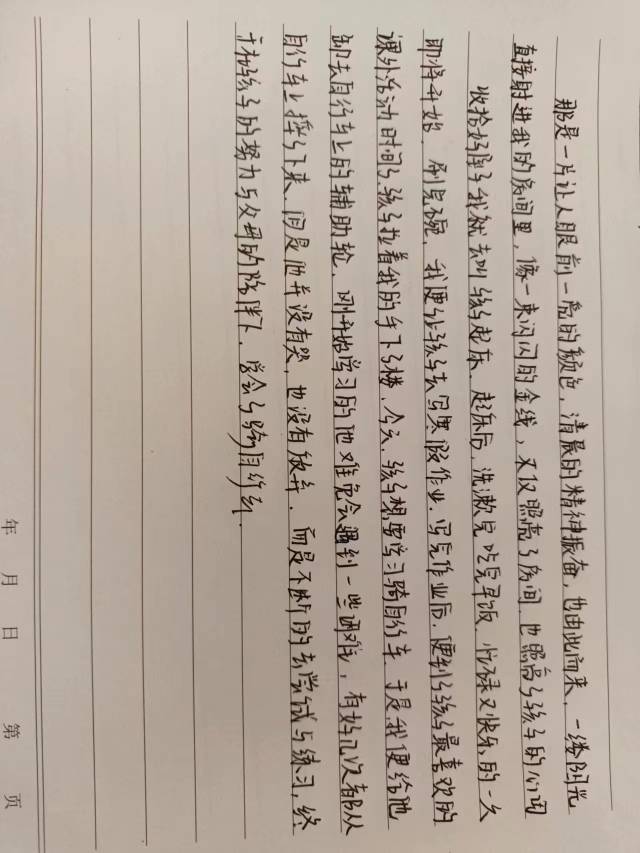 那是一片让人眼前一亮的颜色，清晨的精神振奋，也由此而来，一缕阳光
直接射进我的房间里，像一束闪闪的金线，不仅照亮了房间，也照亮了孩子的心间
收拾好屋子我就去叫孩子起床，起床后，洗漱完吃完早饭，忙碌又快乐的一天
即将开始，刷完碗，我便让孩子去写寒假作业，写完作业后，便到了孩子最喜欢的
课外活动时间了，孩子拉着我的手下了楼，今天，孩子想要学习骑自行车，于是我便给他
卸去自行车上的辅助轮，刚开始学习的他难免会遇到一些困难，有好几次都从
自行车上摔了下来，但是他并没有哭，也没有放弃，而是不断的去尝试与练习，终
于在孩子的努力与父母的陪伴下，学会了骑自行车。
年 月 日 第 页